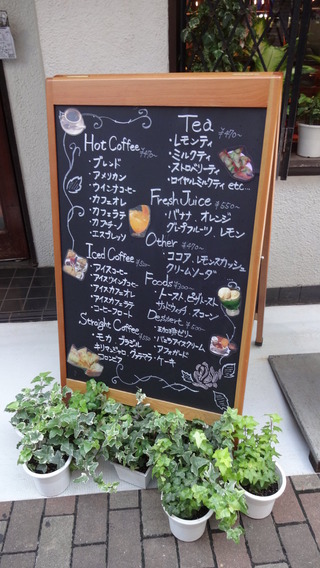 Hot Coffee ¥470～
・ブレンド
・アメリカン
・ウインナコーヒー
・カフェオレ
・カフェラテ
・カプチーノ
・エスプレッソ
Iced Coffee
・アイスコーヒー
・アイスウインナコーヒー
・アイスカフェオレ
・アイスカフェラテ
・コーヒーフロート
Straight Coffee
・モカ ブラジル
キリマンジャロ グァテマラ
コロンビア
Tea ¥470～
・レモンティ
・ミルクティ
・ストロベリーティ
・ロイヤルミルクティ etc...
Fresh Juice ¥550～
・バナナ オレンジ
グレープフルーツ レモン
Other ¥490～
・ココア レモンスカッシュ
クリームソーダ
Foods
・トースト
サンドウィッチ スコーン
Dessert
・バニラアイスクリーム
・アフォガード
・ケーキ